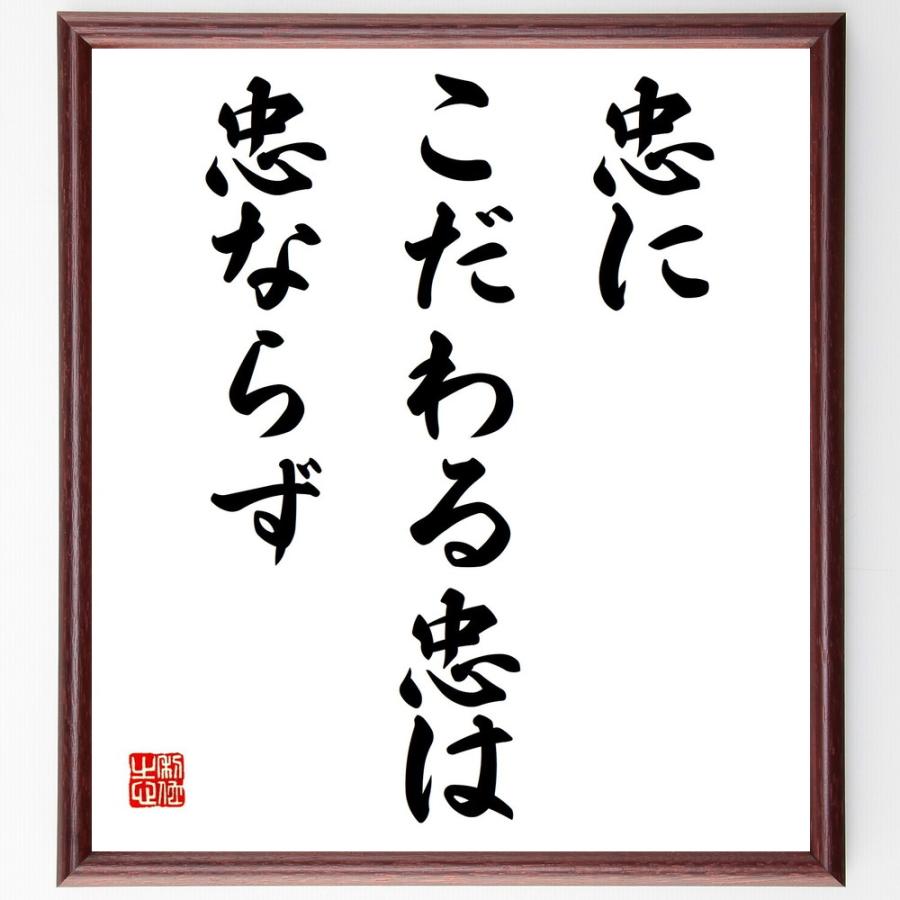 忠に
こだわる忠は
忠ならず